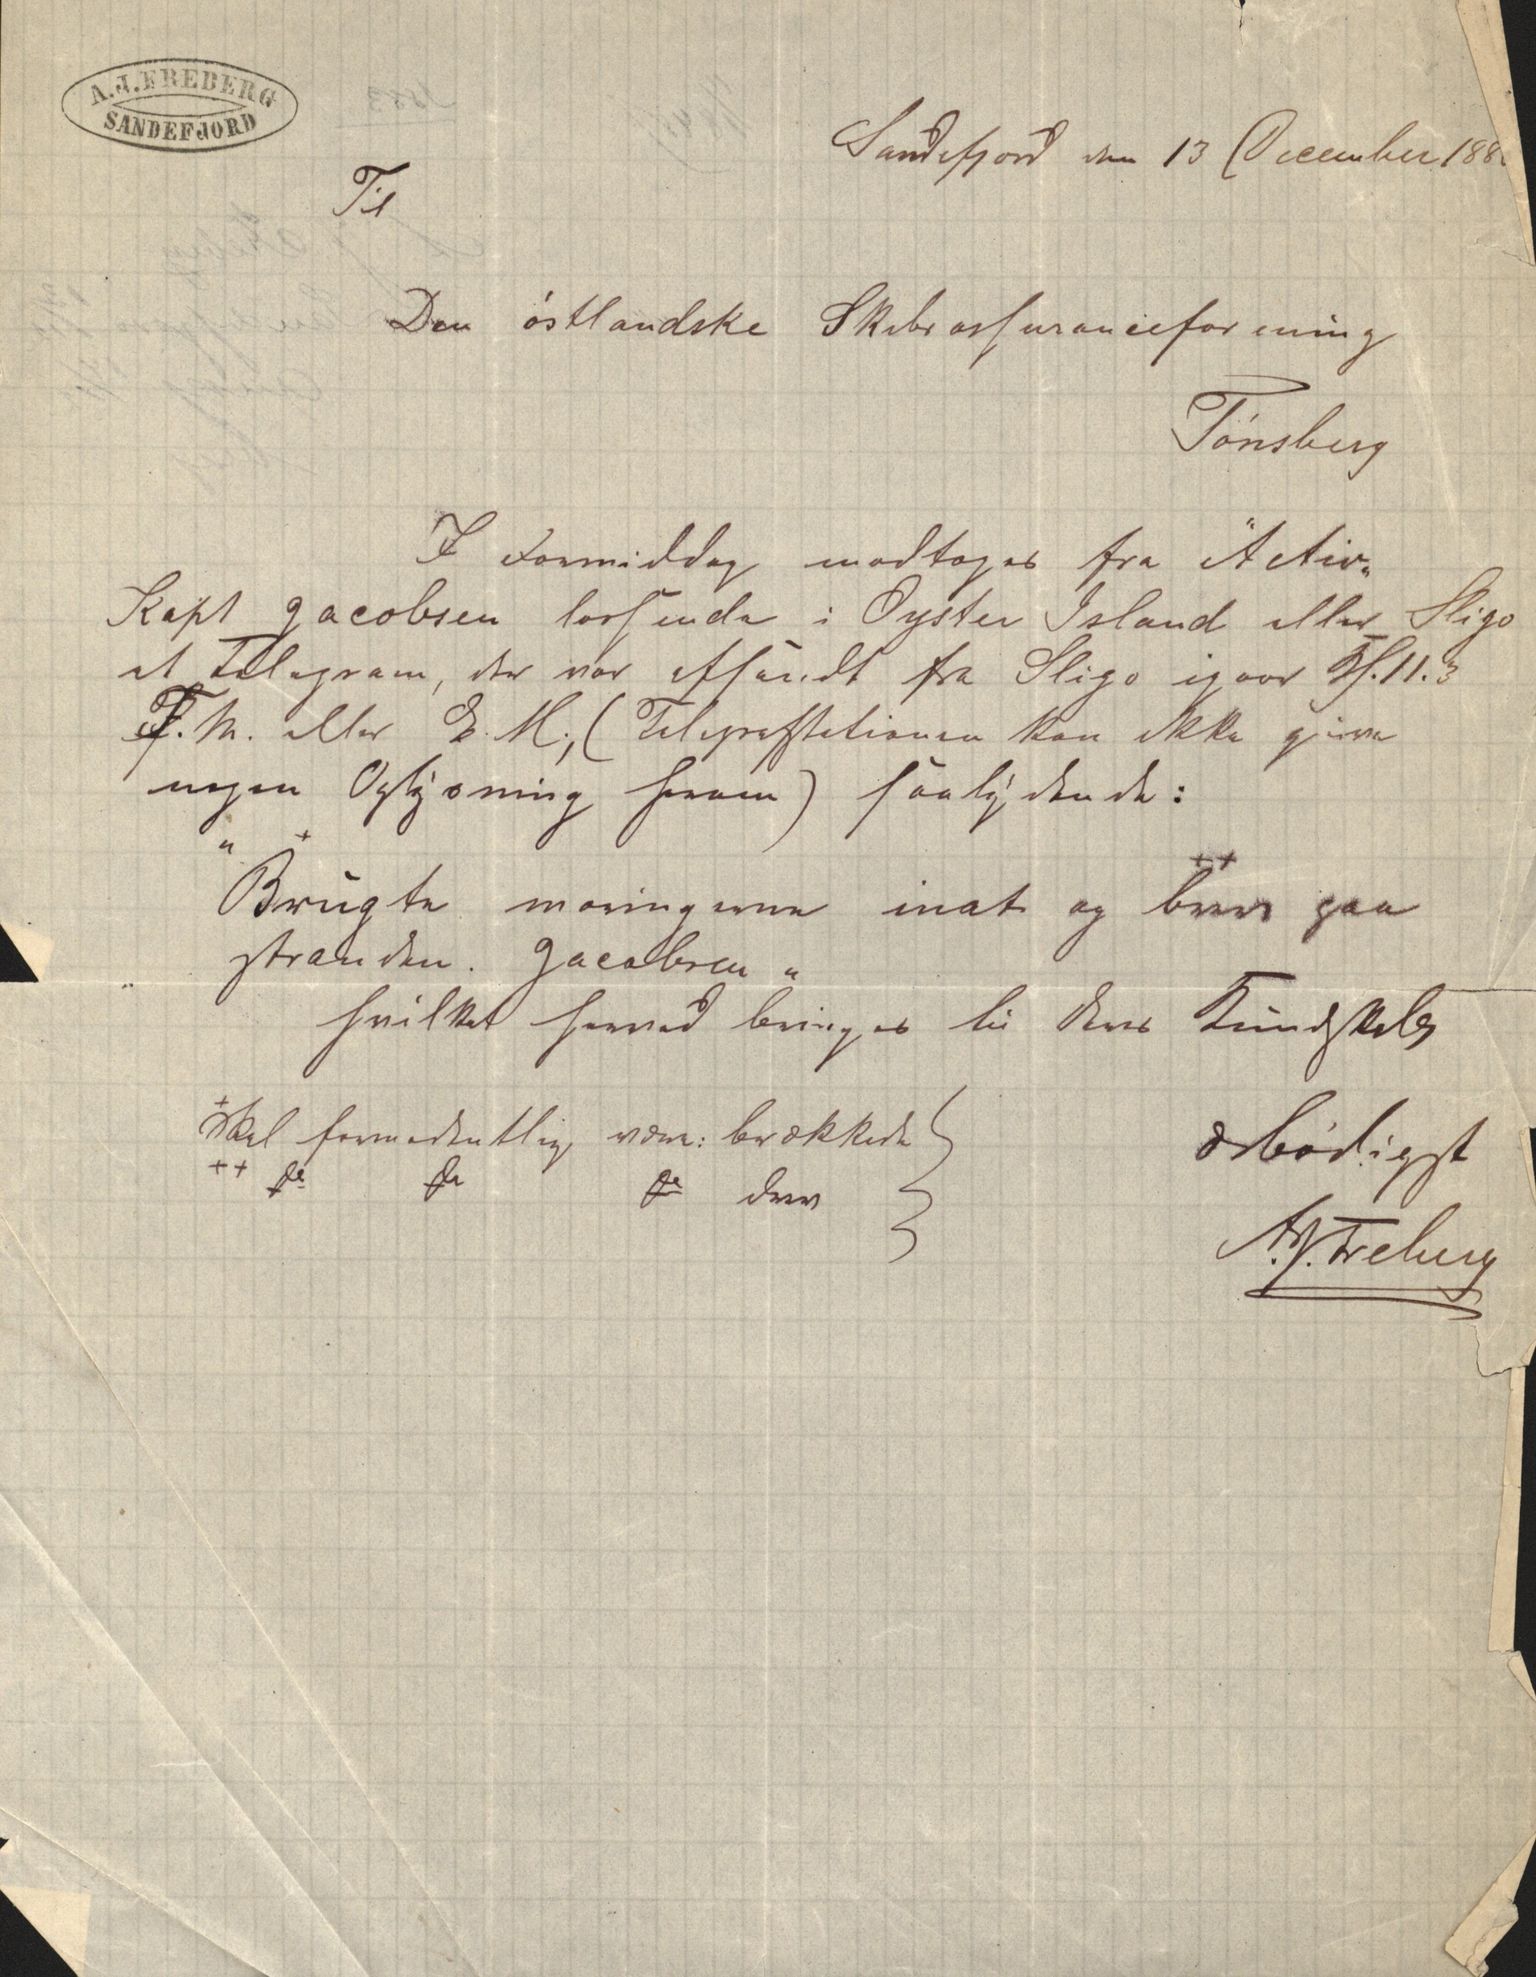 A. J. FREBERG
SANDEFJORD
Sandefjord den 13 December 188
Til
Den östlandske Skibsassuranceforening
Tönsberg
I Formiddag modtoges fra "Activ"
Kapt Jacobsen lossende i Oyster Island eller Sligo
et Telegram, der var afsendt fra Sligo igaar Kl. 11.3
F. M. eller E. M., (Telegrafstationen kan ikke give
nogen Oplysning herom) saalydende:
" +
Brugte moringerne inat og ++ paa
stranden. Jacobsen "
hvilket herved bringes til deres Kundskab
+ Skal formodentlig være: brækkede
++ do do do drev
ærbödigst
A. J. Freberg